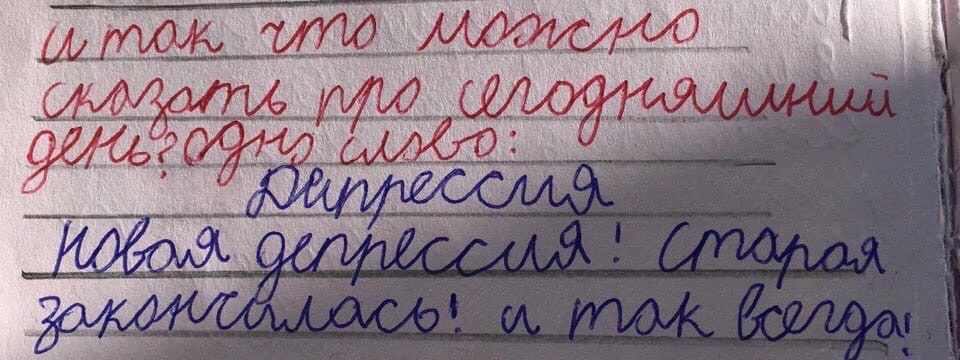 и так что можно
сказать про сегодняшний
день? одно слово:
Дипрессия
новая депрессия! старая
закончилась! и так всегда!